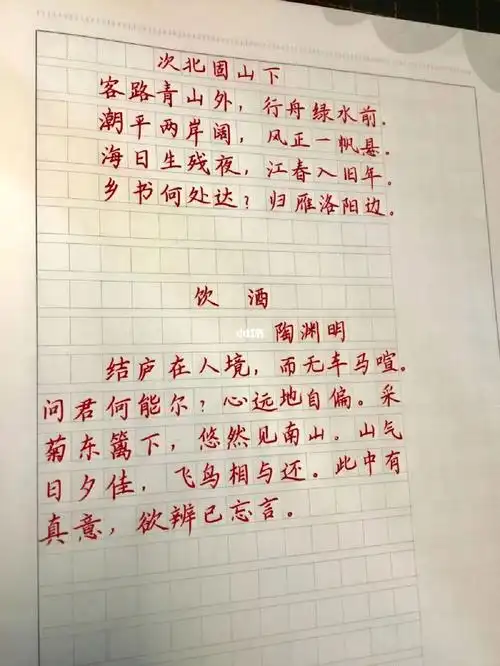 次北固山下
客路青山外，行舟绿水前．
潮平两岸阔，风正一帆悬．
海日生残夜，江春入旧年．
乡书何处达？归雁洛阳边．
饮 酒
小红书
陶渊明
结庐在人境，而无车马喧。
问君何能尔？心远地自偏。采
菊东篱下，悠然见南山。山气
日夕佳，飞鸟相与还。此中有
真意，欲辨已忘言。